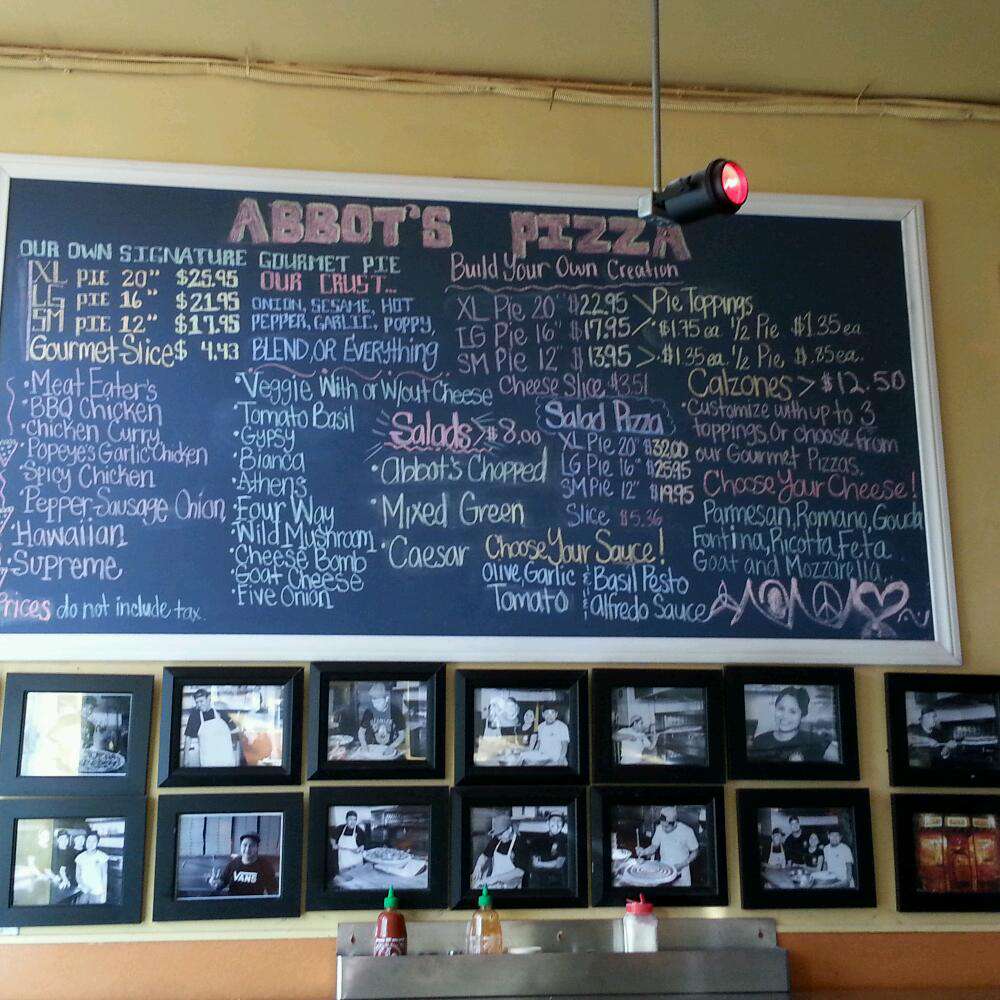 ABBOT'S PIZZA
OUR OWN SIGNATURE GOURMET PIE
XL PIE 20" $25.95
LG PIE 16" $21.95
SM PIE 12" $17.95
Gourmet Slice $ 4.43
OUR CRUST...
ONION, SESAME, HOT
PEPPER, GARLIC, POPPY,
BLEND, OR EVERYTHING
•Meat Eater's
•BBQ Chicken
•Chicken Curry
•Popeye's Garlic Chicken
•Spicy Chicken
•Pepper-Sausage Onion
•Hawaiian
•Supreme
Prices do not include tax.
•Veggie With or W/out Cheese
•Tomato Basil
•Gypsy
•Bianca
•Athens
•Four Way
•Wild Mushroom
•Cheese Bomb
•Goat Cheese
•Five Onion
Salads > $8.00
•Abbot's Chopped
•Mixed Green
•Caesar
Build Your Own Creation
XL Pie 20" $22.95
LG Pie 16" $17.95
SM Pie 12" $13.95
Cheese Slice $3.51
Pie Toppings
•$1.75 ea 1/2 Pie $1.35 ea
>•$1.35 ea. 1/2 Pie, $.85 ea.
Salad Pizza
XL Pie 20" $32.00
LG Pie 16" $25.95
SM Pie 12" $19.95
Slice $5.36
Choose Your Sauce!
Olive, Garlic
Tomato
Basil Pesto
Alfredo Sauce
Calzones > $12.50
•Customize with up to 3
toppings. Or choose from
our Gourmet Pizzas.
Choose Your Cheese!
Parmesan, Romano, Gouda
Fontina, Ricotta, Feta
Goat and Mozzarella..
VANS